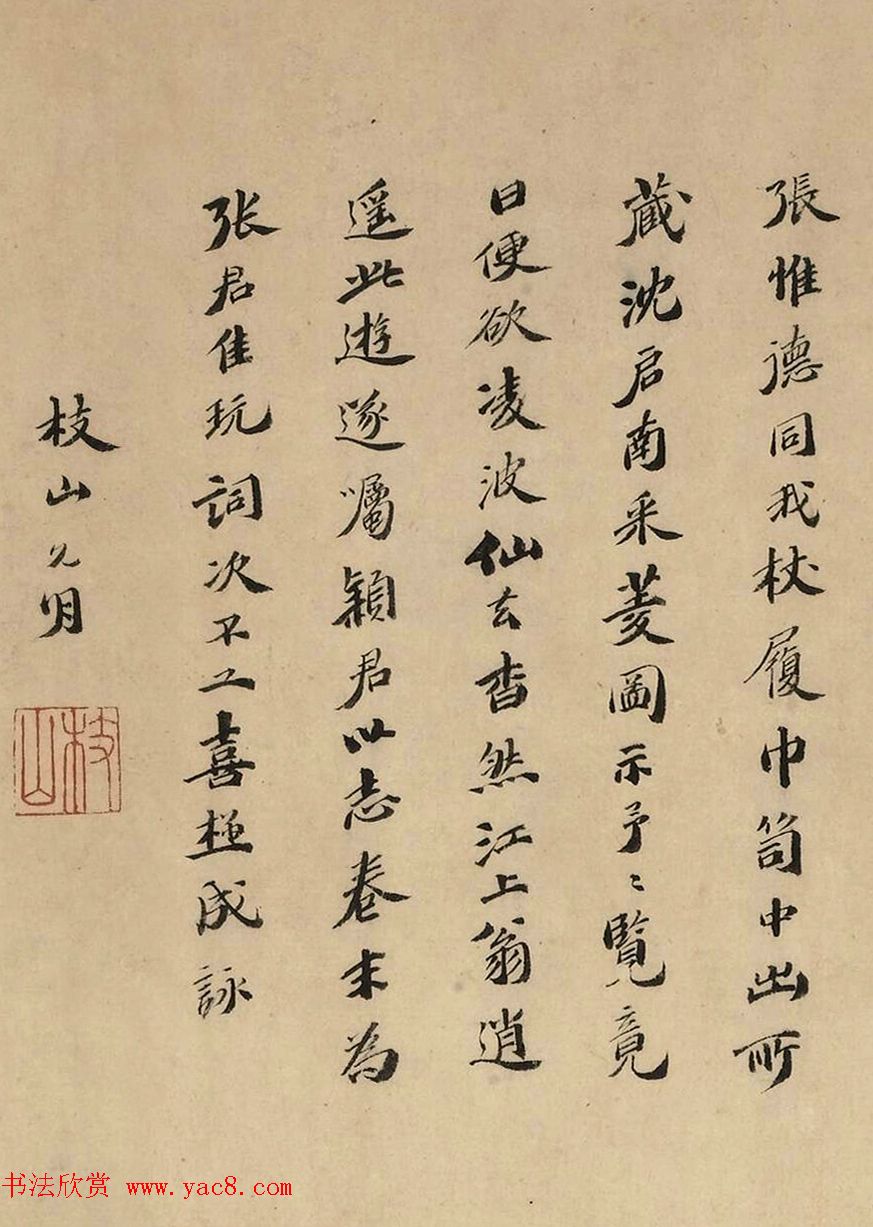 張惟德同我杖履巾笥中出所
藏沈启南采菱圖示予〻覽竟
日便欲凌波仙去杳然江上翁逍
遥此遊遂囑穎君以志卷末為
张君佳玩詞次不工喜極成詠
枝山允明
枝山
书法欣赏 www.yac8.com